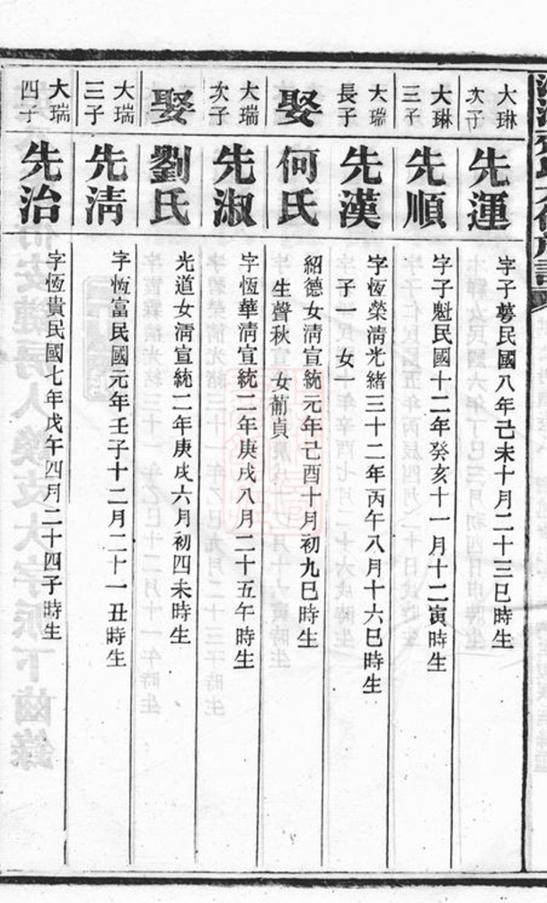 大琳
次子
先運
字子夢民國八年己未十月二十三巳時生
大琳
三子
先順
字子魁民國十二年癸亥十一月十二寅時生
大瑞
長子
先漢
字恆榮淸光緖三十二年丙午八月十六巳時生
子一 女一
娶
何氏
紹德女淸宣統元年己酉十月初九巳時生
生聲秋 女葡貞
大瑞
次子
先淑
字恆華淸宣統二年庚戌八月二十五午時生
娶
劉氏
光道女淸宣統二年庚戌六月初四未時生
大瑞
三子
先淸
字恆富民國元年壬子十二月二十一丑時生
大瑞
四子
先治
字恆貴民國七年戊午四月二十四子時生